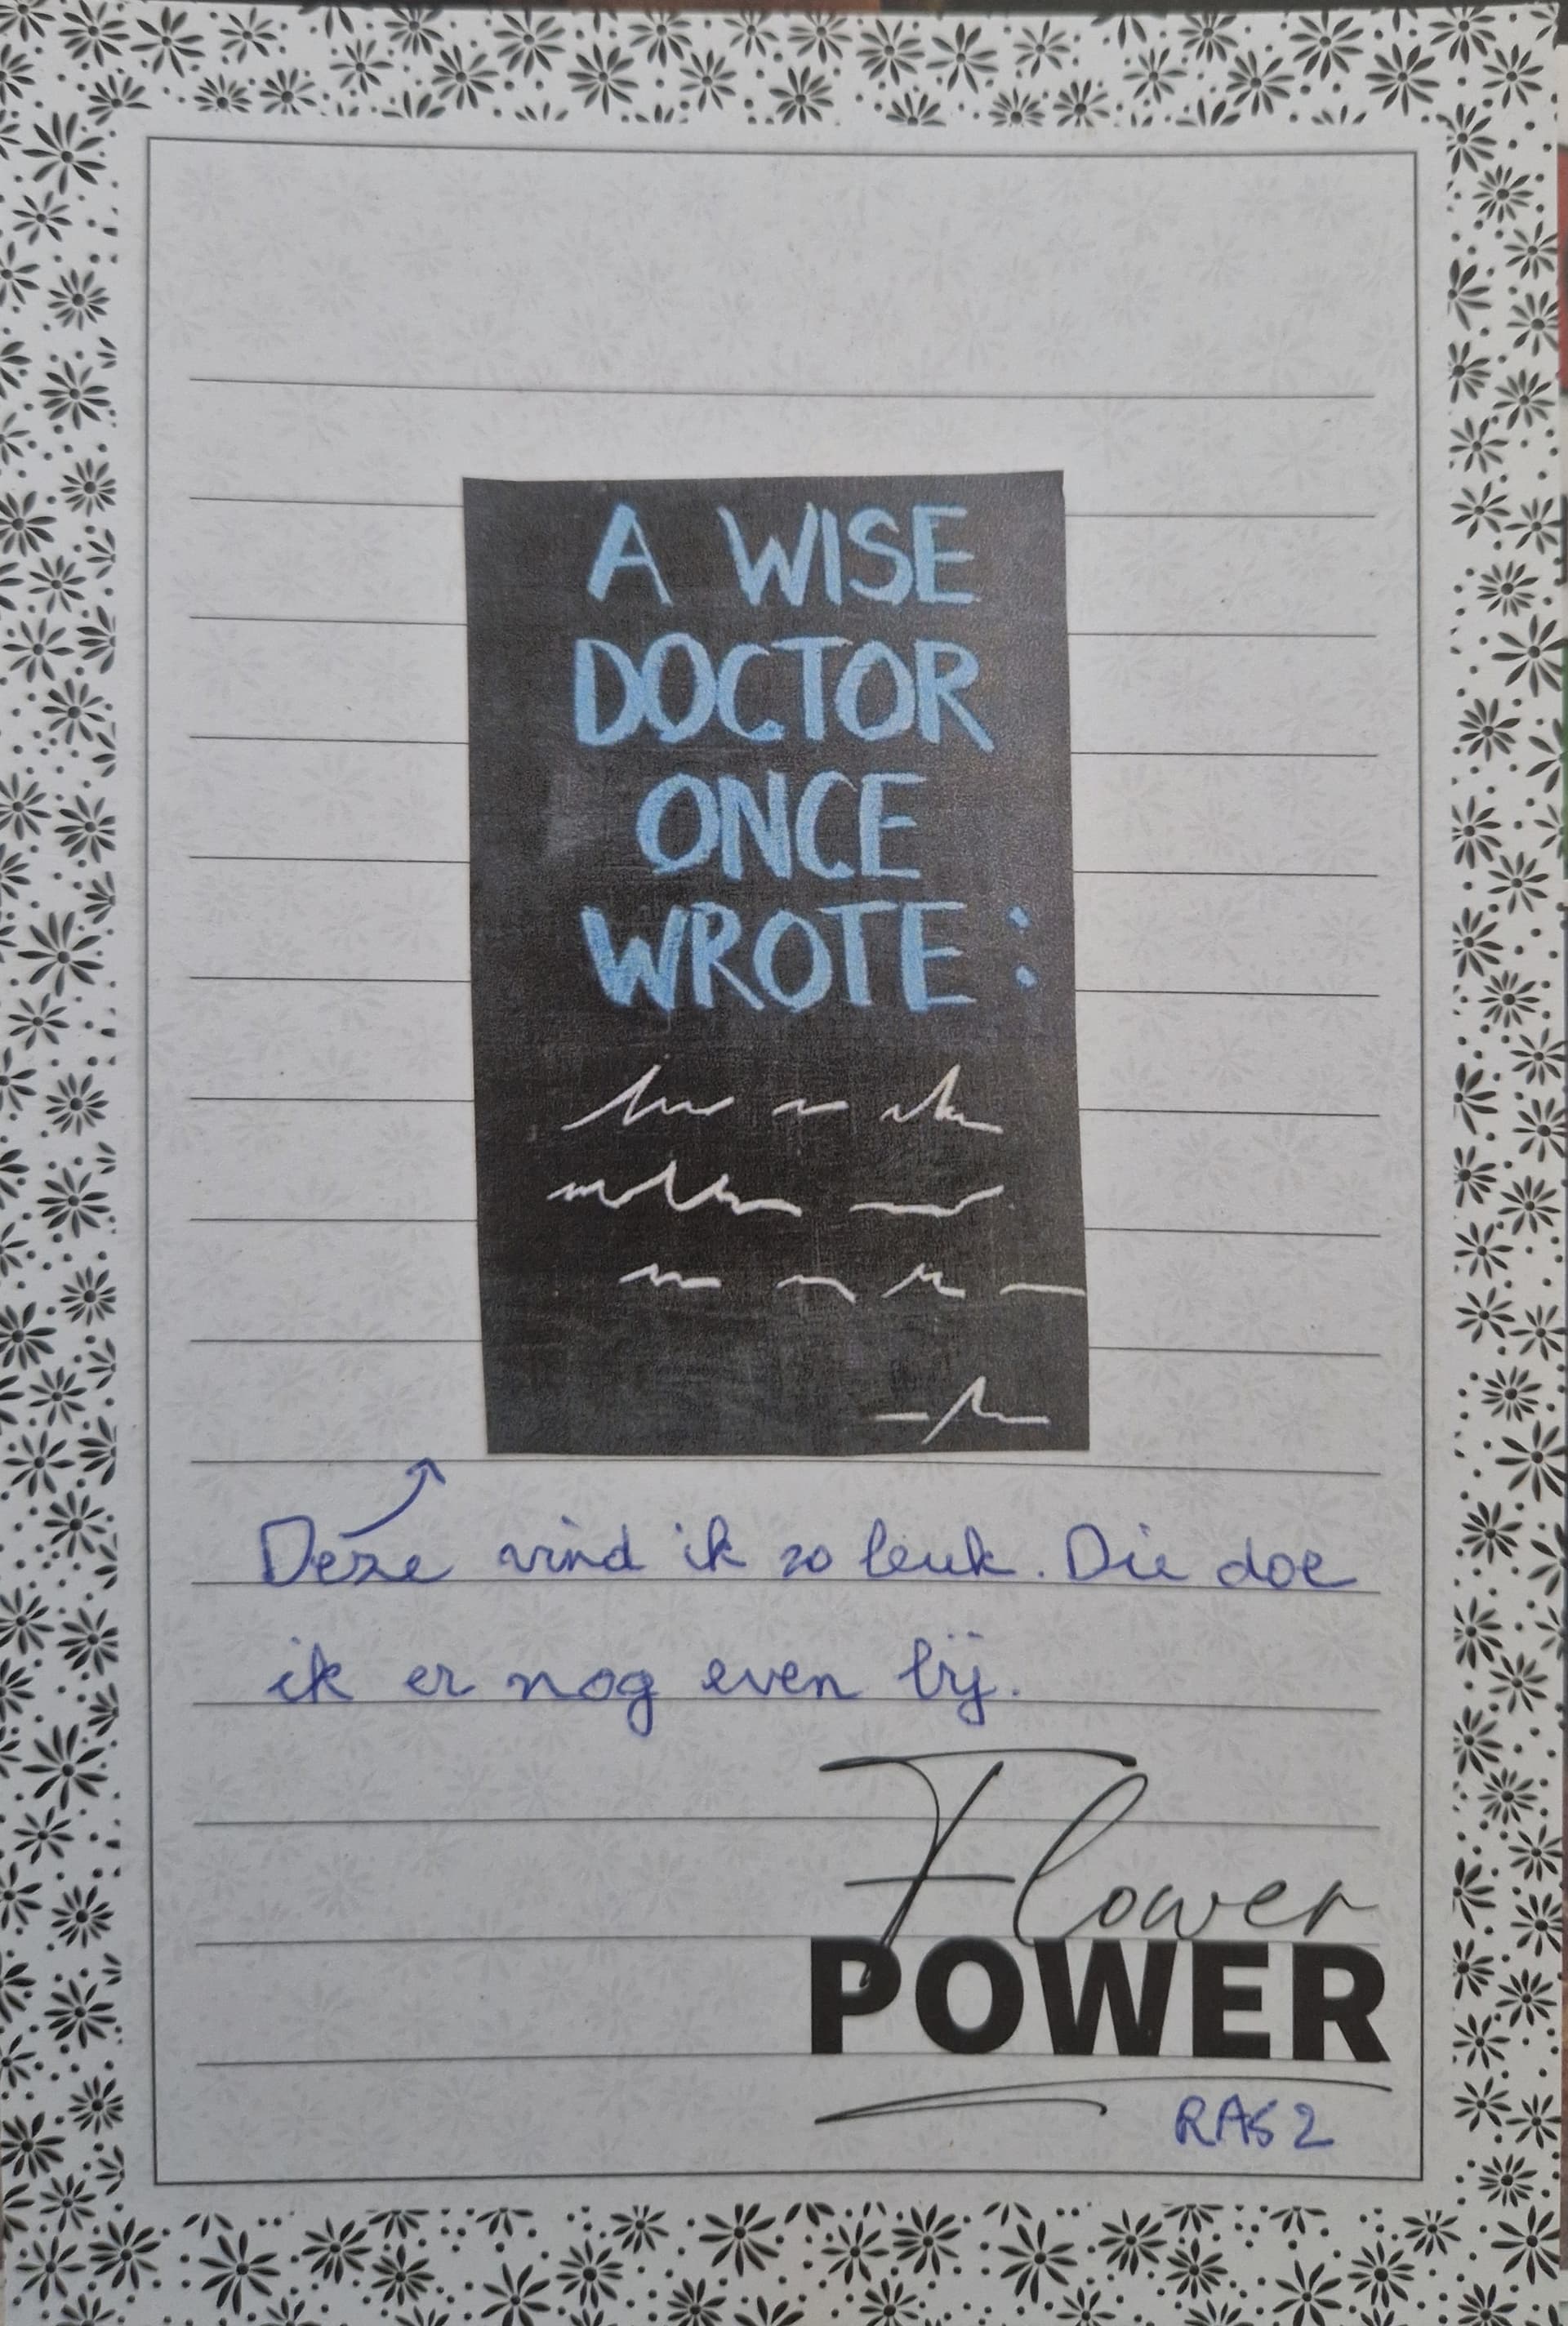 A WISE
DOCTOR
ONCE
WROTE :
Deze vind ik zo leuk. Die doe
ik er nog even bij.
Flower
POWER
RAS 2